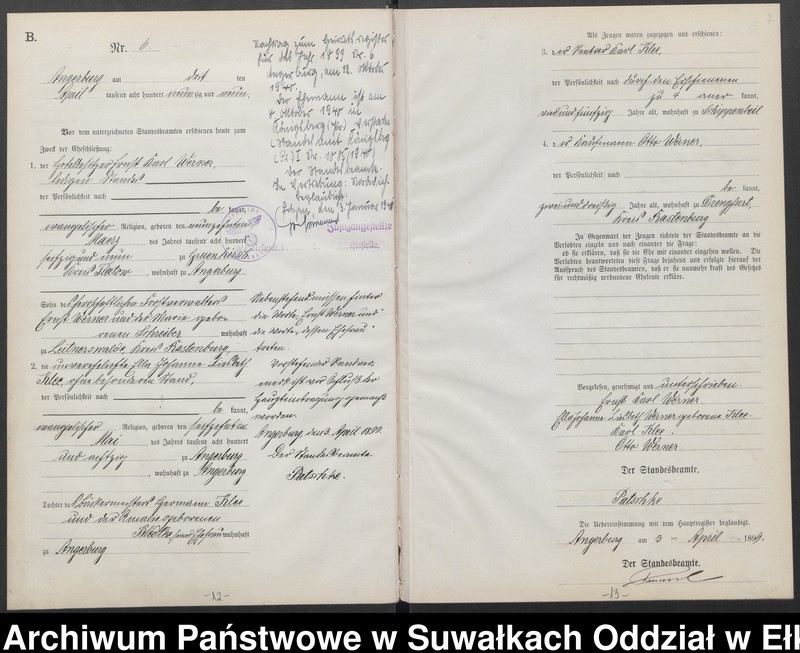 B.
Nr. 6
Angerburg am drei ten
April tausend acht hundert neunzig und neun.
Vor dem unterzeichneten Standesbeamten erschienen heute zum
Zweck der Eheschließung:
1. der Hotelbesitzer Ernst Karl Werner,
ledigen Standes
der Persönlichkeit nach
be kannt,
evangelischer Religion, geboren den neunzehnten
Maerz des Jahres tausend acht hundert
sechzig und neun zu
Kreis Flatow, wohnhaft zu Angerburg
Sohn des herrschaftlichen Forstverwalters
Ernst Werner und der Marie gebo-
renen Schreiber wohnhaft
zu Kreis Rastenburg,
2. die unverehelichte Ella Johanna Lisbeth
Klee, ohne besonderen Stand,
der Persönlichkeit nach
be kannt,
evangelischer Religion, geboren den sechszehnten
Mai des Jahres tausend acht hundert
und achtzig zu Angerburg
, wohnhaft zu Angerburg
Tochter des Bäckermeisters Hermann Klee
und der Amalie geborenen
wohnhaft
zu Angerburg
Nachtrag zum Heiratsregister
für das Jahr 1899 Nr. 6
Angerburg, am 12. Oktober
1940.
Der Ehemann ist am
4. Oktober 1940 in
Königsberg (Pr) verstorben
(Standesamt Königsberg
(Pr) I Nr.
Der Standesbeamte.
In Vertretung:
Beglaubigt:
den 3. Januar
Nebenstehend müssen hinter
die Worte, Ernst Werner und
die Worte, dessen Ehefrau
treten.
Vorstehender Randver-
merk ist vor Schluß der
Haupteintragung gemacht
worden.
Angerburg den 3. April 1899.
Der Standesbeamte
Patschke.
-12-
Als Zeugen waren zugezogen und erschienen:
3. der Rentner Karl Klee,
der Persönlichkeit nach durch den Erschienenen
zu 4 aner kannt,
vierundfünfzig Jahre alt, wohnhaft zu Schippenbeil
4. der Kaufmann Otto Werner,
der Persönlichkeit nach
be kannt,
zweiunddreißig Jahre alt, wohnhaft zu Drengfurt,
Kreis Rastenburg
In Gegenwart der Zeugen richtete der Standesbeamte an die
Verlobten einzeln und nach einander die Frage:
ob sie erklären, daß sie die Ehe mit einander eingehen wollen. Die
Verlobten beantworteten diese Frage bejahend und erfolgte hierauf der
Ausspruch des Standesbeamten, daß er sie nunmehr kraft des Gesetzes
für rechtmäßig verbundene Eheleute erkläre.
Vorgelesen, genehmigt und unterschrieben.
Ernst Karl Werner.
Ella Johanna Lisbeth Werner geborene Klee.
Karl Klee.
Otto Werner
Der Standesbeamte.
Patschke
Die Uebereinstimmung mit dem Hauptregister beglaubigt.
Angerburg am 3 ten April 1899.
Der Standesbeamte.
-13-
Archiwum Państwowe w Suwałkach Oddział w Ełk